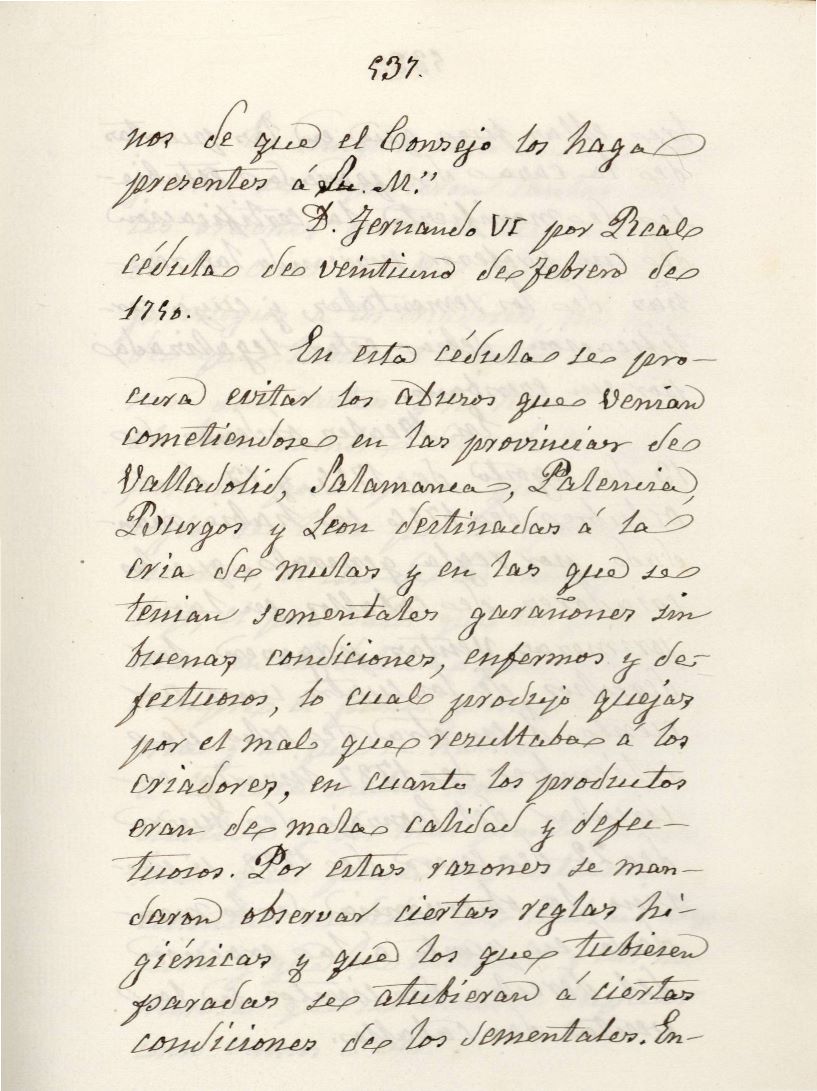 537.
nos de que el Consejo los haga
presentes á Su. M."
D. Fernando VI por Real
cédula de veintiuno de Febrero de
1750.
En esta cédula se pro-
cura evitar los abusos que venian
cometiendose en las provincias de
Valladolid, Salamanca, Palencia,
Burgos y Leon destinadas á la
cria de mulas y en las que se
tenian sementales garañones sin
buenas condiciones, enfermos y de-
fectuosos, lo cual produjo quejas
por el mal que resultaba á los
criadores, en cuanto los productos
eran de mala calidad y defec-
tuosos. Por estas razones se man-
daron observar ciertas reglas hi-
giénicas y que los que tubiesen
paradas se atubieran á ciertas
condiciones de los sementales. En-